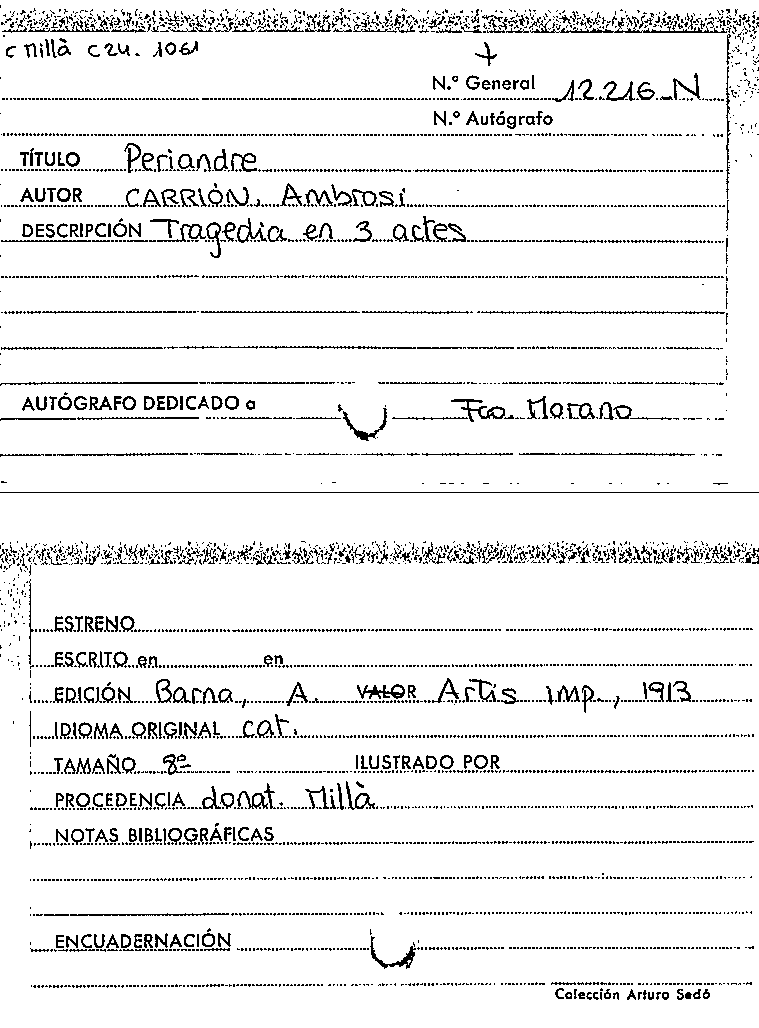 C Millà C24. 1061
+
N.º General 12.216-N
N.º Autógrafo
TÍTULO Periandre
AUTOR CARRIÓN, Ambrosi
DESCRIPCIÓN Tragedia en 3 actes
AUTÓGRAFO DEDICADO a Fco. Morano
ESTRENO
ESCRITO en en
EDICIÓN Barna, A. VALOR Artis imp., 1913
IDIOMA ORIGINAL cat.
TAMAÑO 8º ILUSTRADO POR
PROCEDENCIA donat. Millà
NOTAS BIBLIOGRÁFICAS
ENCUADERNACIÓN
Colección Arturo Sedó